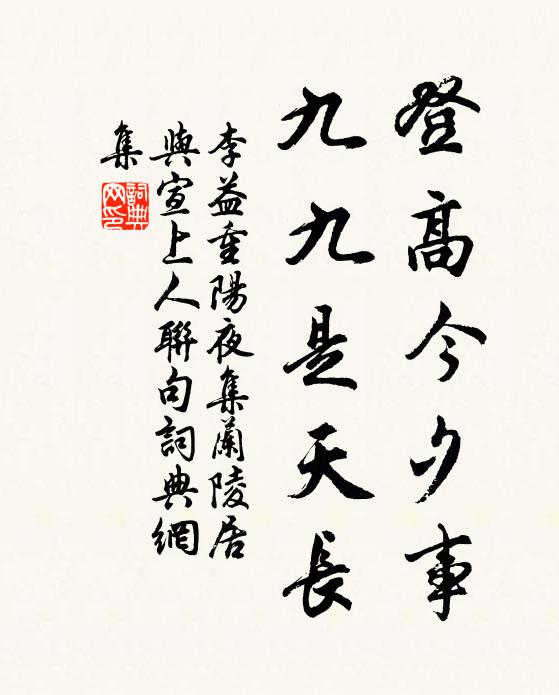 登高今夕事
九九是天長
李益重陽夜集蘭陵居
與宣上人聯句詞典網
集
詞典
网印